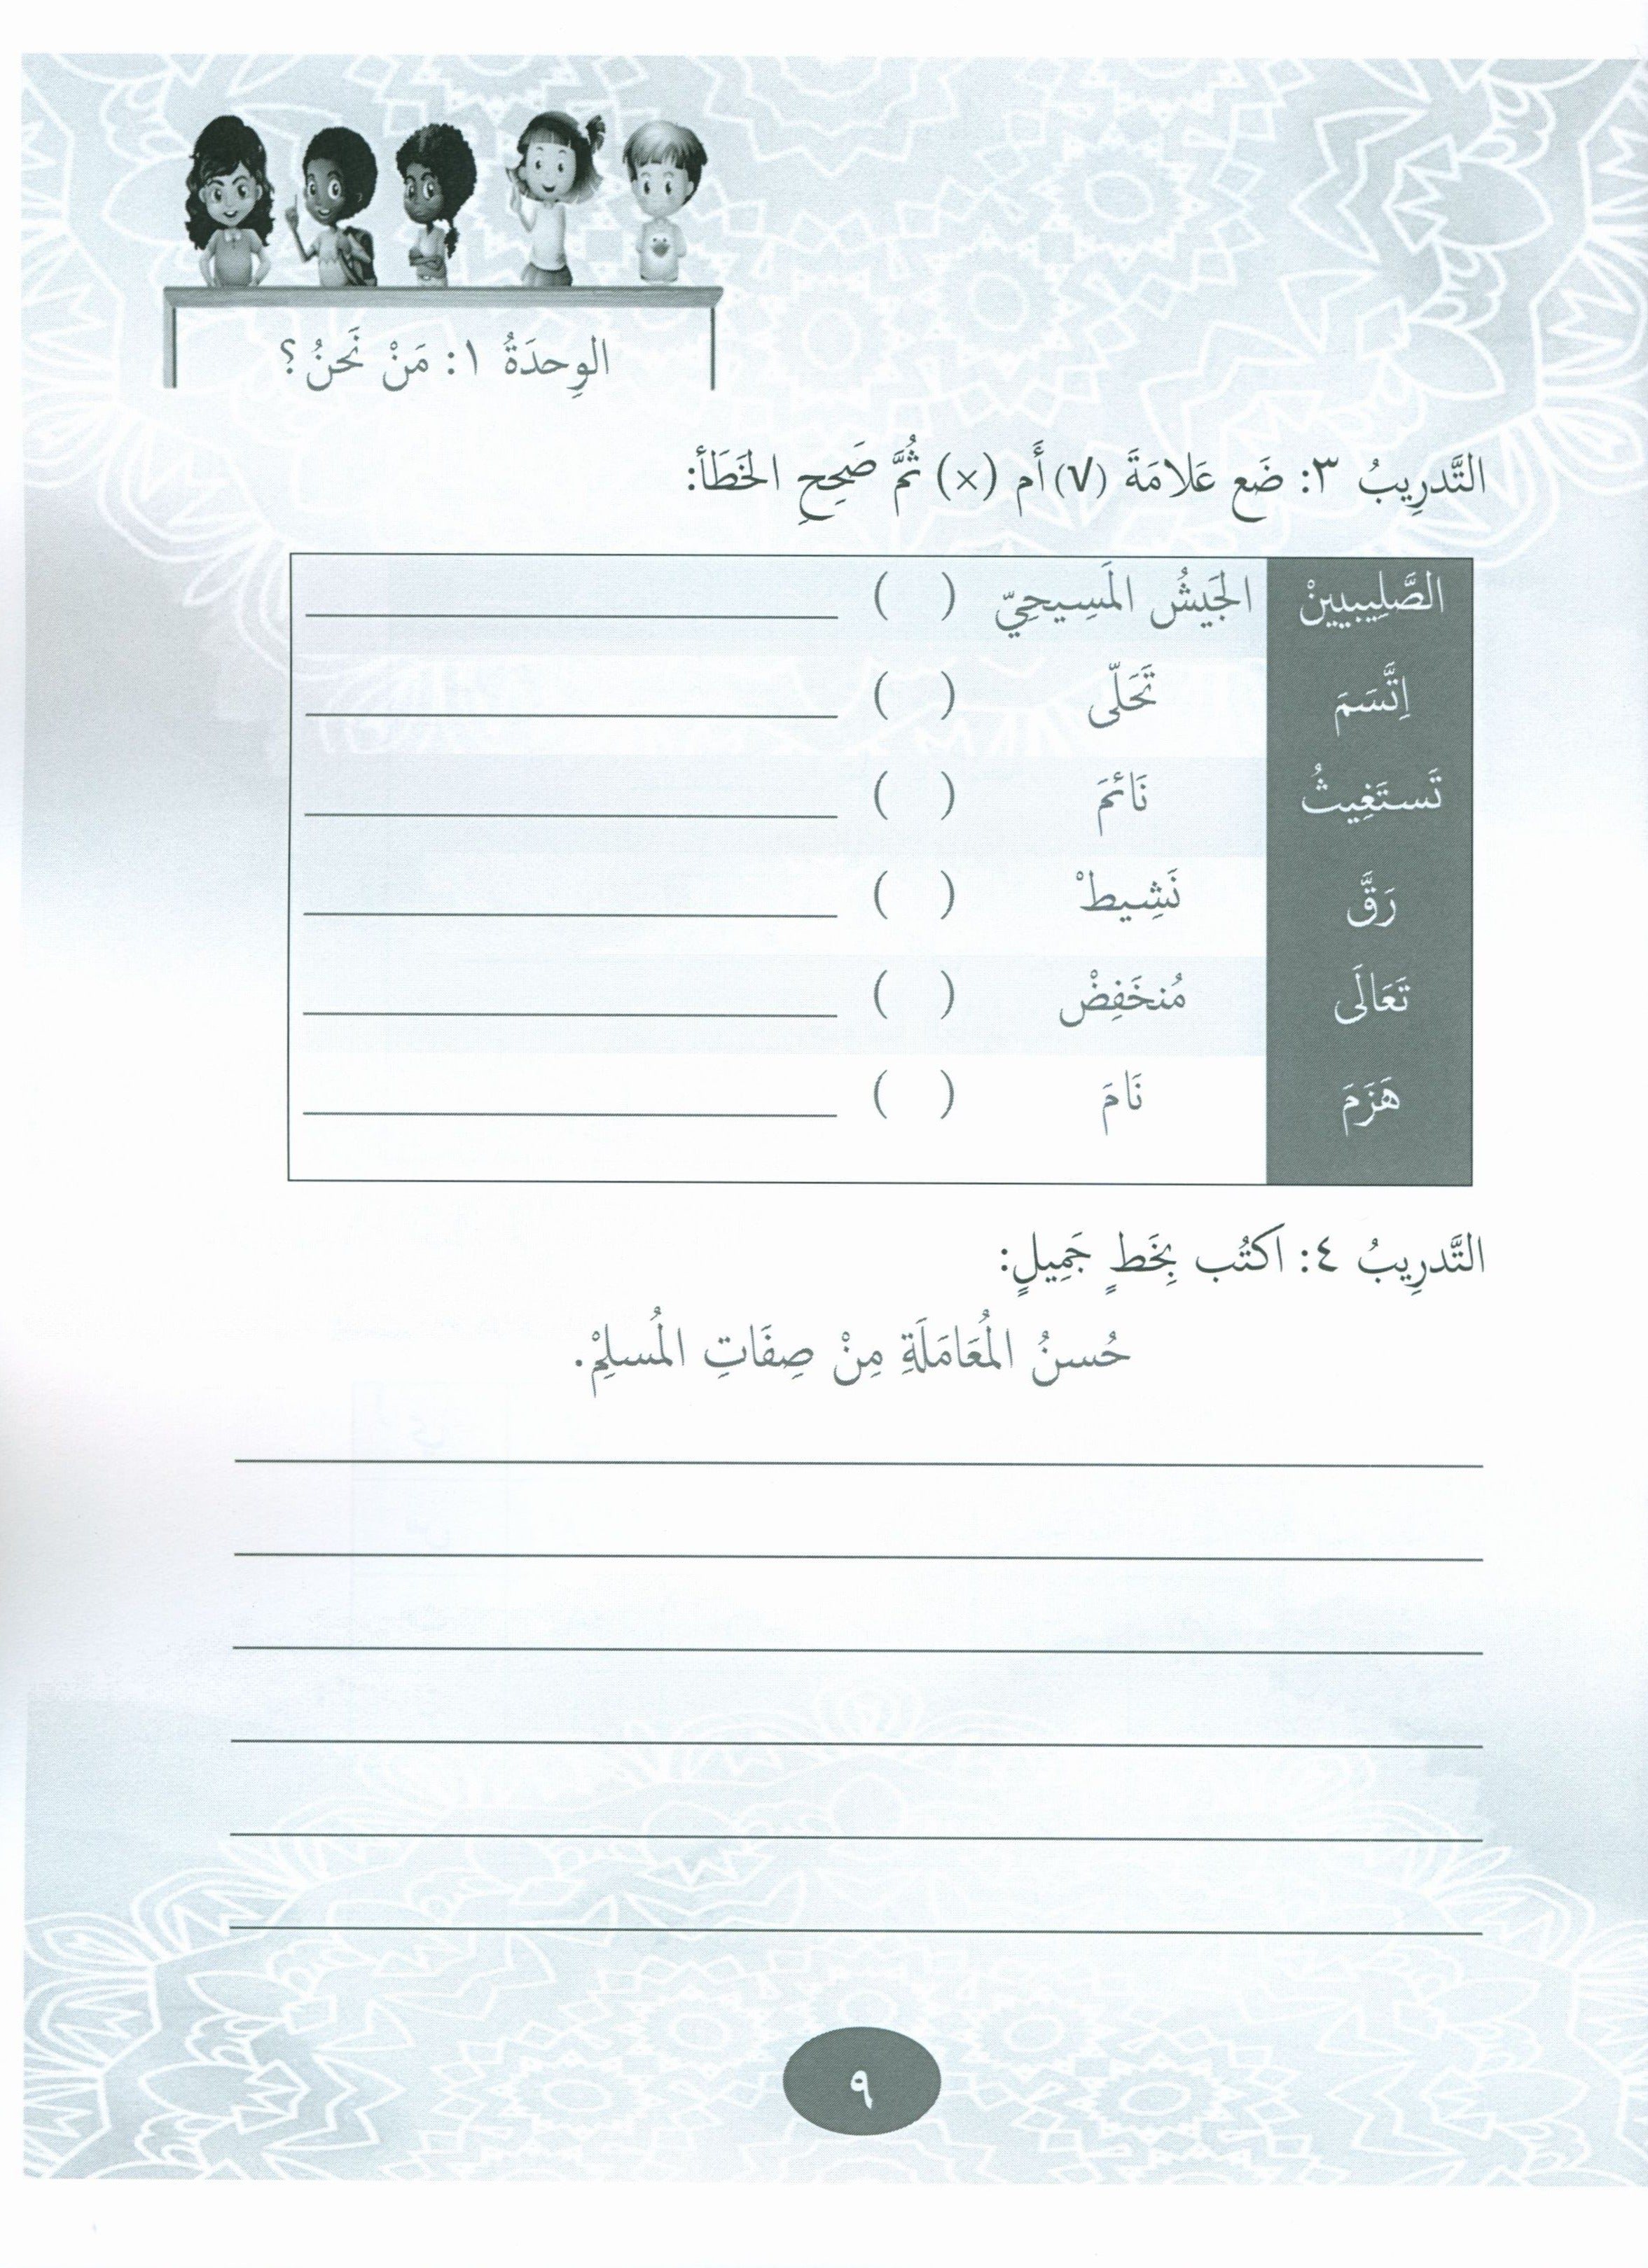 الوِحدَةُ ١: مَنْ نَحنُ؟
التَّدرِيبُ ٣: ضَع عَلامَةَ (√) أَم (×) ثُمَّ صَحِحِ الخَطَأ:
الصَّلِيبِيينْ الجَيشُ المَسِيحِيّ ( )
اِتَّسَمَ تَحَلّى ( )
تَستَغِيثُ نَائمَ ( )
رَقَّ نَشِيطْ ( )
تَعَالَى مُنخَفِضْ ( )
هَزَمَ نَامَ ( )
التَّدرِيبُ ٤: اكتُب بِخَطٍ جَمِيلٍ:
حُسنُ المُعَامَلَةِ مِنْ صِفَاتِ المُسلِمْ.
٩